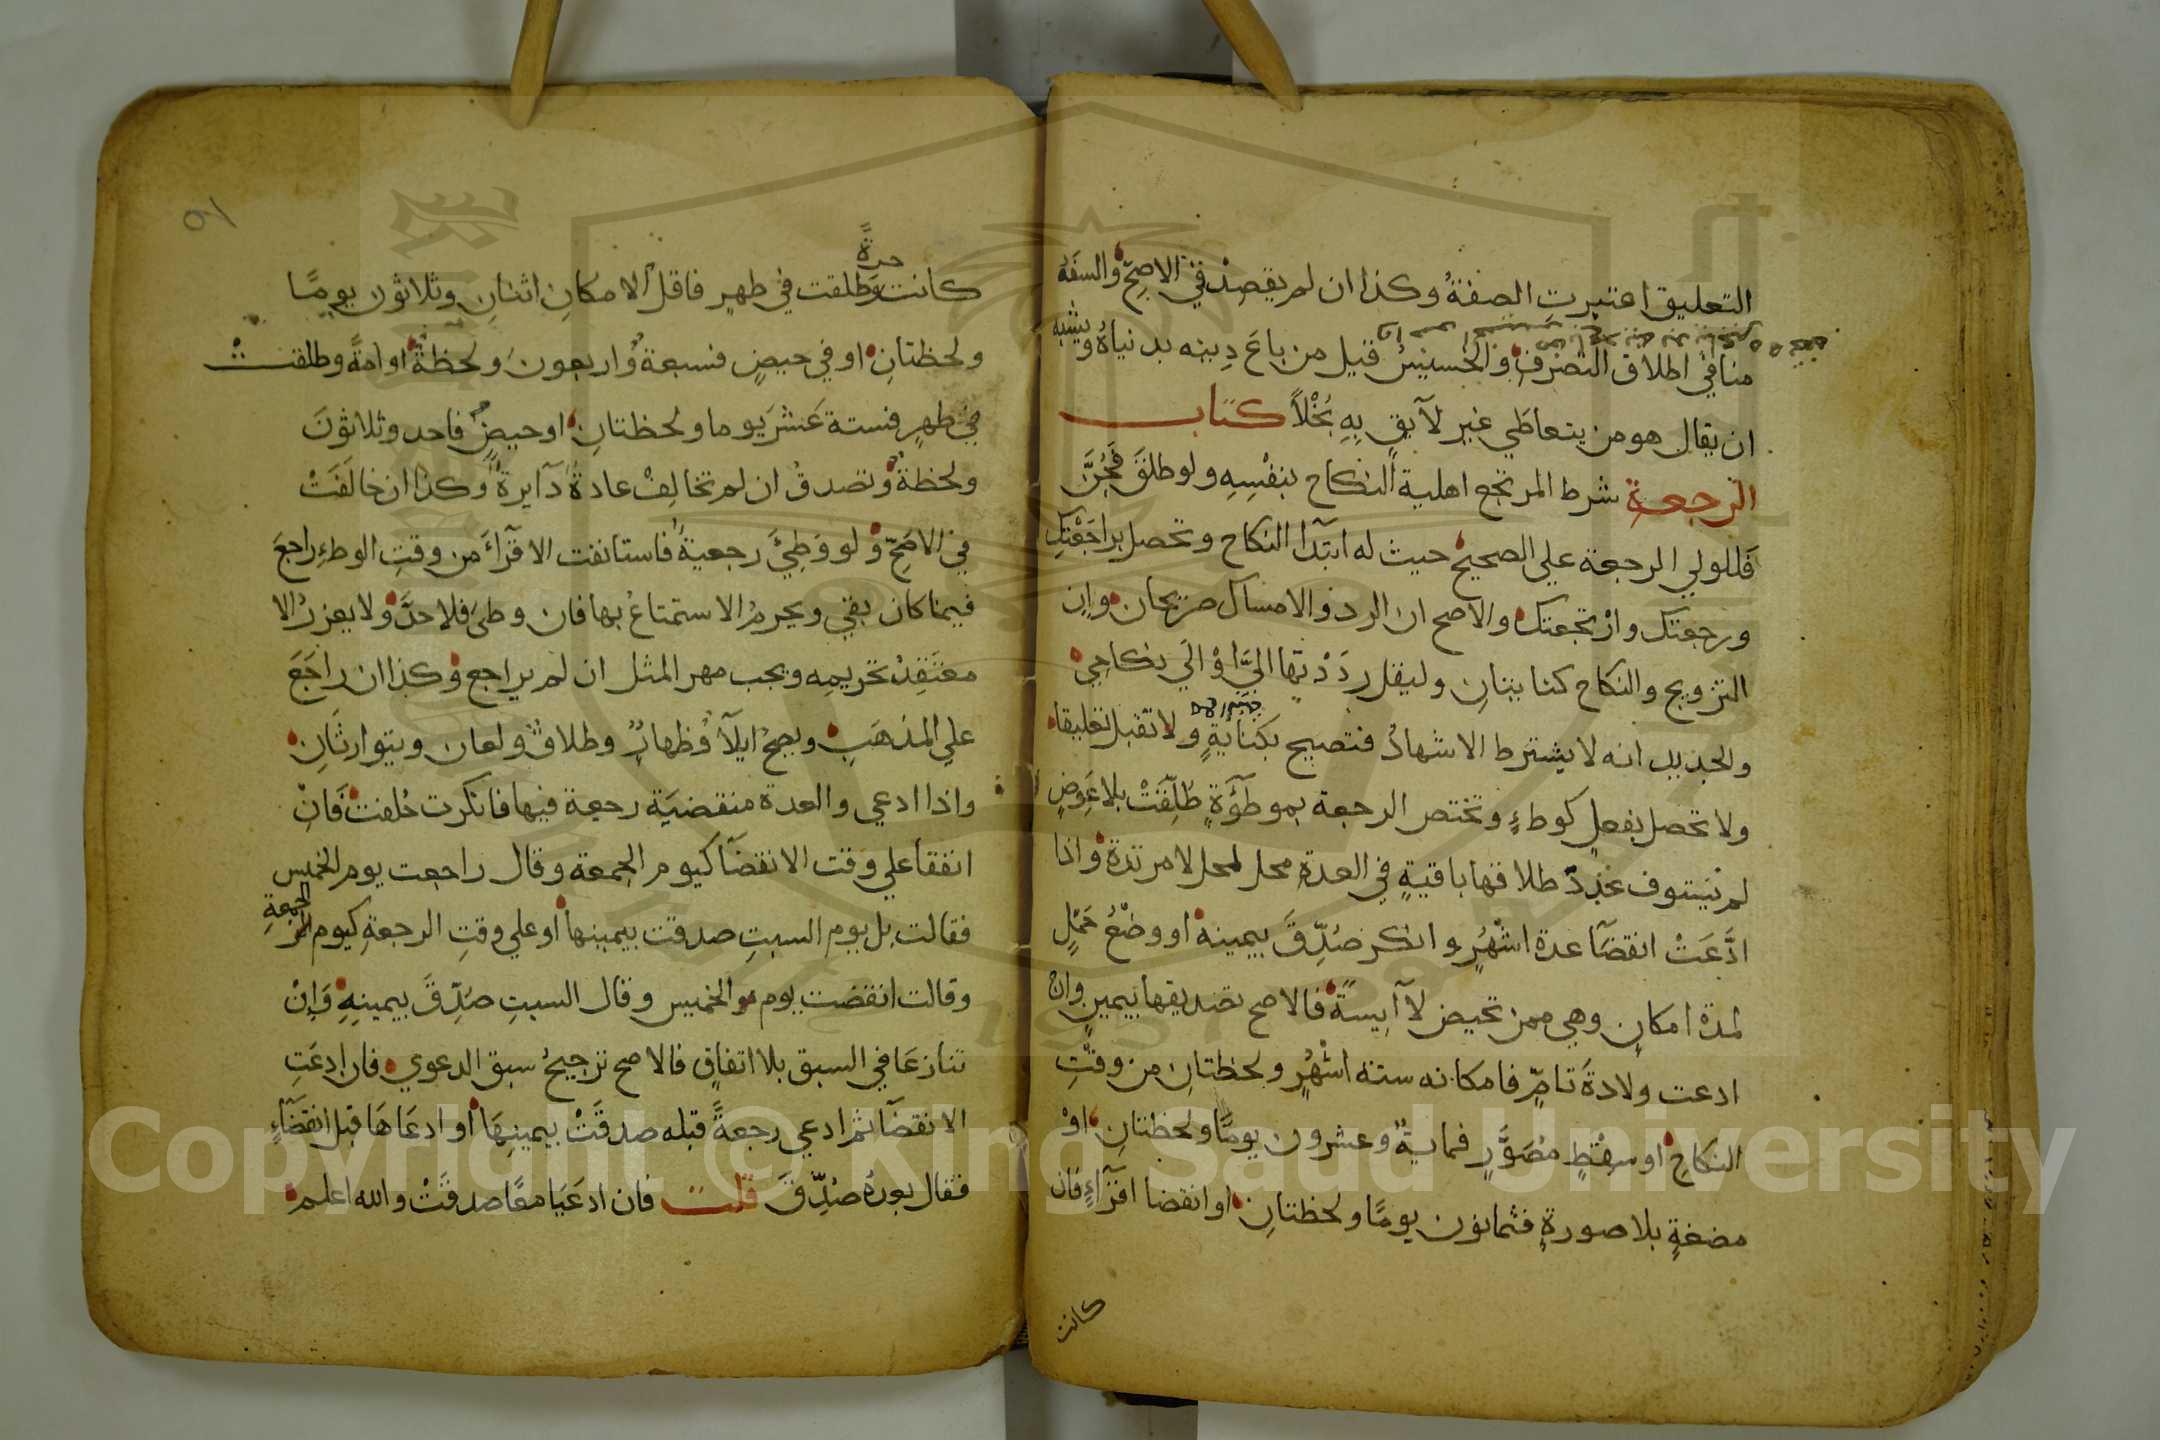 التعليق اعتبرت الصفة وكذا ان لم يقصد في الاصح والسفه
منافي اطلاق التصرف والخسيس قيل من باع دينه بدنياه ويشبه
ان يقال هو من يتعاطي غير لايق به بخلا كتاب
الرجعة شرط المرتجع اهلية النكاح بنفسه ولو طلق فجن
فللولي الرجعة علي الصحيح حيث له ابتدا النكاح وتحصل براجعتك
ورجعتك وارتجعتك والاصح ان الرد والامساك صريحان وان
التزويج والنكاح كنايتان وليقل رددتها الي او الي نكاحي
والجديد انه لا يشترط الاشهاد فتصح بكناية ولا تقبل تعليقا
ولا تحصل بفعل كوطء وتختص الرجعة بموطؤة طلقت بلا عوض
لم يستوف عدد طلاقها باقية في العدة محل لحل لا مرتدة واذا
ادعت انقضا عدة اشهر وانكر صدق بيمينه او وضع حمل
لمدة امكان وهي ممن تحيض لا ايسة فالاصح تصديقها بيمين وان
ادعت ولادة تام فامكانه ستة اشهر ولحظتان من وقت
النكاح او سقط مصور فماية وعشرون يوما ولحظتان او
مضغة بلا صورة فثمانون يوما ولحظتان او انقضا اقراء فان
كانت
٩١
حرة
كانت وطلقت في طهر فاقل الامكان اثنان وثلاثون يوما
ولحظتان او في حيض فسبعة واربعون ولحظة او امة وطلقت
في طهر فستة عشر يوما ولحظتان او حيض فاحد وثلاثون
ولحظة وتصدق ان لم تخالف عادة دايرة وكذا ان خالفت
في الاصح ولو وطئ رجعية فاستانفت الاقراء من وقت الوطء راجع
فيما كان بقي ويحرم الاستمتاع بها فان وطئ فلا حد ولا يعزر الا
معتقد تحريمه ويجب مهر المثل ان لم يراجع وكذا ان راجع
علي المذهب ويصح ايلاء وظهار وطلاق ولعان ويتوارثان
واذا ادعي والعدة منقضية رجعة فيها فانكرت حلفت فان
اتفقا علي وقت الانقضا كيوم الجمعة وقال راجعت يوم الخميس
فقالت بل يوم السبت صدقت بيمينها او علي وقت الرجعة كيوم الجمعة
وقالت انقضت يوم الخميس وقال السبت صدق بيمينه وان
تنازعا في السبق بلا اتفاق فالاصح ترجيح سبق الدعوي فان ادعت
الانقضا ثم ادعي رجعة قبله صدقت بيمينها او ادعاها قبل انقضاء
فقال بعده صدق قلت فان ادعيا معا صدقت والله اعلم
Copyright © King Saud University
1957